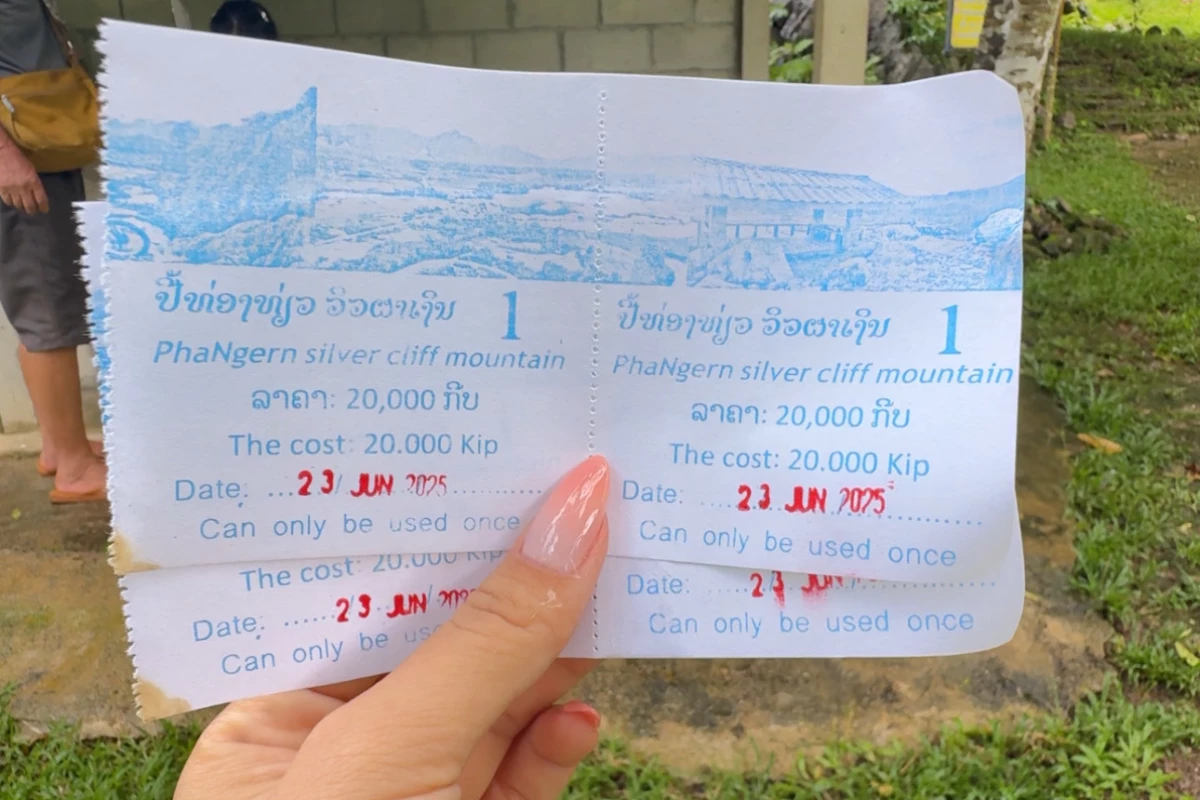 ປີ້ທ່ອງທ່ຽວ ວິວຜາເງິນ 1
PhaNgern silver cliff mountain
ລາຄາ: 20,000 ກີບ
The cost: 20.000 Kip
Date: ... 23 JUN 2025 ............
Can only be used once
ປີ້ທ່ອງທ່ຽວ ວິວຜາເງິນ 1
PhaNgern silver cliff mountain
ລາຄາ: 20,000 ກີບ
The cost: 20.000 Kip
Date: .... 23 JUN 2025 ............
Can only be used once
The cost: 20.000 Kip
Date: ...... 23 JUN
Can only be
Date: ..... 23 JUN ............
Can only be used once